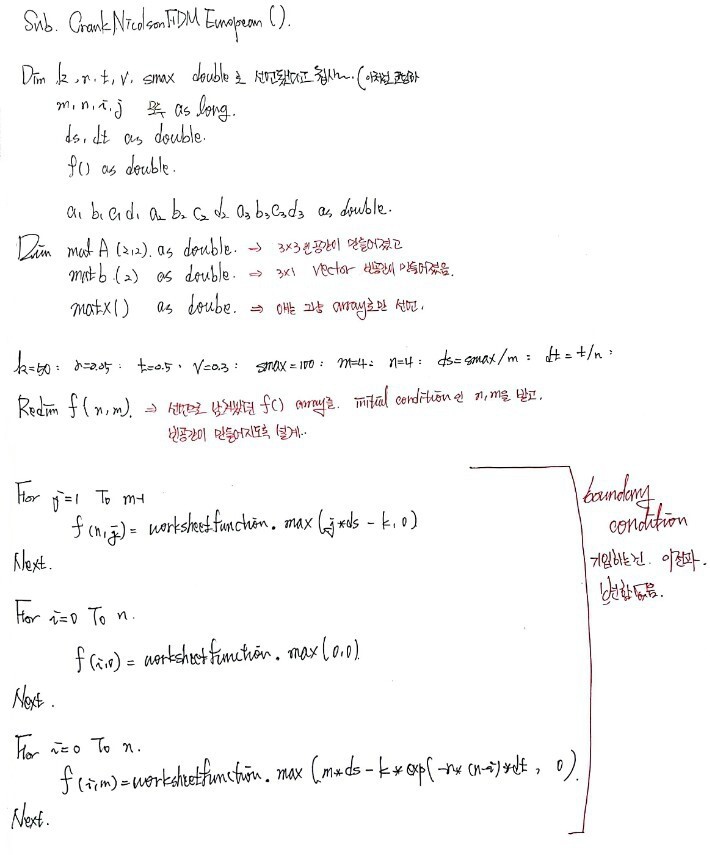 Sub. CrankNicolsonFDMEuropean ().
Dim k, r, t, v, smax double로 선언됐다고 칩시다.. (
m, n, i, j 모두 as long.
ds, dt as double.
f() as double.
a1 b1 c1 d1 a2 b2 c2 d2 a3 b3 c3 d3 as double.
Dim mat A (2,2). as double. → 3×3 빈공간이 만들어졌고
mat b (2) as double. → 3×1 vector 빈공간이 만들어졌음.
matx() as doube. → 얘는 그냥 array로만 선언.
k=50 : r=0.05 : t=0.5 : v=0.3 : smax=100 : m=4 : n=4 : ds=smax/m : dt=t/n :
Redim f(n,m). → 선언으로 남겨놨던 f() array를. initial condition인 n,m을 받고.
빈공간이 만들어지도록 설계..
For j=1 To m-1
f(n,j) = worksheetfunction.max(j*ds - k, 0)
Next.
For i=0 To n.
f(i,0) = worksheetfunction.max(0,0)
Next.
For i=0 To n.
f(i,m) = worksheetfunction.max (m*ds - k*exp(-r*(n-i)*dt, 0)
Next.
boundary
condition
기입하는건. 이전과.
변함없음.